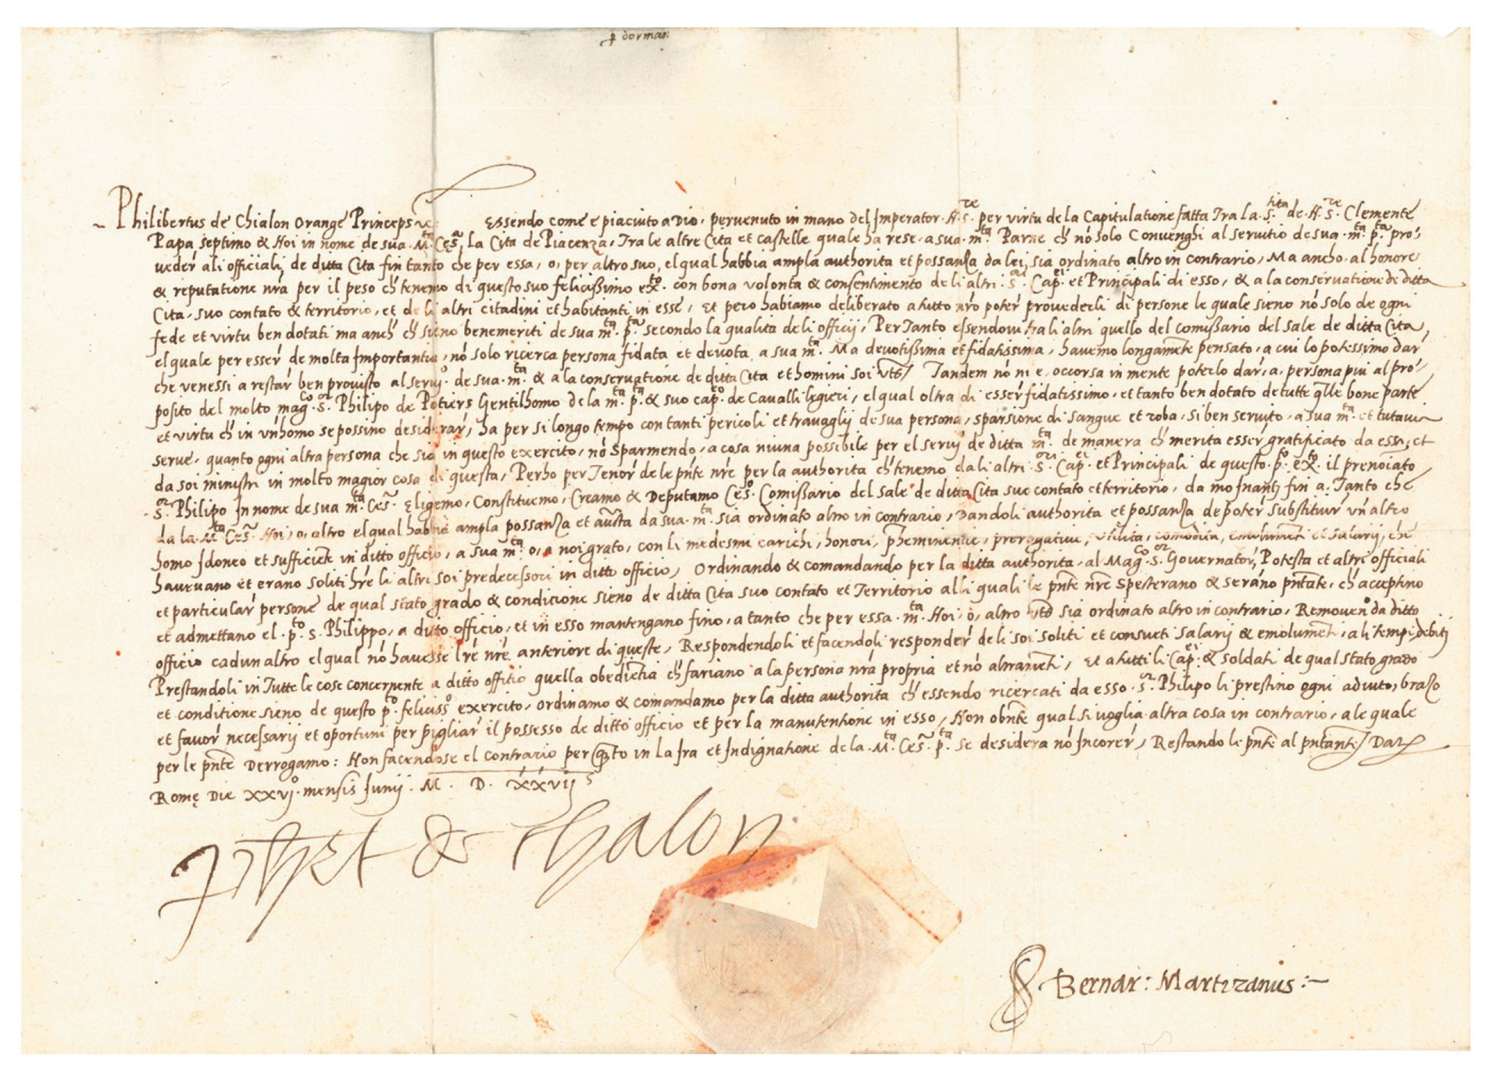 dorman
Philibertus de Chialon Orange Princeps Essendo come è piaciuto a Dio, pervenuto in mano del Imperator .N.S.re per virtu de la Capitulatione fatta Tra la .S.ta de .N.S.re Clemente
Papa septimo & Noi in nome de sua .M.ta Ces.a, la Cita de Piacenza, Tra le altre Cita et castelle quale ha rese, a sua .m.ta Parne ch nó solo Convenghi al servitio de sua .m.ta p.ta pro,
veder ali officiali de ditta Cita fin tanto che per essa, o, per altro suo, el qual habbia ampla authorita et possanza da lei, sia ordinato altro in contrario, Ma ancho al honore
& reputatione nra per il peso ch tenemo di questo suo felicissimo ex.to con bona volonta & consentimento de li altri .S.ri Cap.ei et Principali di esso, & a la conservatione de ditta
Cita, suo contato & territorio, et de li altri citadini et habitanti in esse, Et pero habiamo deliberato a tutto nro poter provederli di persone le quale sieno nó solo de ogni
fede et virtu ben dotati ma anch ch sieno benemeriti de sua m.ta p.ta secondo la qualita deli officij, Per Tanto essendovi tra li altri quello del comissario del sale de ditta Cita,
el quale per esser de molta Importantia, nó solo ricerca persona fidata et devota a sua m.ta Ma devotissima et fidatissima, havemo longamete pensato, a cui lo potessimo dar
che venessi a restar ben provisto al serv.o de sua .m.ta & a la conservatione de ditta Cita et homini soi Tandem nó ni e, occorsa in mente poterlo dar, a persona piu al pro,
posito del molto mag.co S.or Philipo de Potiers Gentilhomo de la m.ta p.ta & suo cap.eo de Cavalli legieri, el qual oltra di esser fidatissimo, et tanto ben dotato de tutte qlle bone parte
et virtu ch in vn homo se possino desiderar, ha per si longo tempo con tanti pericoli et travaglij de sua persona, sparsione di sangue et roba, si ben servito, a sua m.ta et tutavia
serve, quanto ogni altra persona che sia in questo exercito, nó Sparmendo, a cosa niuna possibile per el serv.o de ditta m.ta de manera ch merita esser gratificato da essa, et
da soi ministri in molto magior cosa di questa, Perho per Tenor de le pnte nre per la authorita ch tenemo da li altri .S.ri Cap.ei et Principali de questo .p.to ex.to il prenoiato
.S.or Philipo In nome de sua m.ta Ces.a Eligemo, Constituemo, Creamo & Deputamo Ces.o Comissario del sale de ditta Cita sue contato et territorio, da mo Inantz fin a Tanto che
da la .M.ta Ces.a Noi, o, altro el qual habbia ampla possanza et aucta da sua .m.ta sia ordinato altro in contrario, Dandoli authorita et possanza de poter substituir vn altro
homo Idoneo et sufficiete in ditto officio, a sua m.ta o, a noi grato, con li medesmi carichi, honori, pheminentie, prerogative, vtilita, comodita, emolumeti et salarij, che
havevano et erano soliti hre li altri soi predecessori in ditto officio, Ordinando & comandando per la ditta authorita, al Mag.co S.or Governator, Potesta et altri officiali
et particular persone de qual stato grado & conditione sieno de ditta Cita suo contato et Territorio alli quali le pnte nre Spetterano & serano pntate, ch acceptino
et admettano el .p.to S. Philippo, a ditto officio, et in esso mantengano fino, a tanto che per essa .m.ta Noi, ò, altro sia ordinato altro in contrario, Removeno da ditto
officio cadun altro el qual nó havesse lre nre anteriore di queste, Respondendoli et facendoli responder deli soi soliti et consueti salarij & emolumeti, a li tempi debiti
Prestandoli in Tutte le cose concernente a ditto offitio quella obedietia ch fariano a la persona nra propria et nó altrameti, Et a tutti li Cap.ei & soldati de qual stato grado
et conditione sieno de questo p.to feliciss.o exercito, ordinamo & comandamo per la ditta authorita ch essendo ricercati da esso .S.or Philipo li prestino ogni adiuto, brazo
et favor necessarij et oportuni per pigliar il possesso de ditto officio et per la manutentione in esso, Non obnte qual si voglia altra cosa in contrario, a le quale
per le pnte Derrogamo: Non facendose el contrario per qto in la Ira et Indignatione de la .M.ta Ces.a p.ta se desidera nó Incorer, Restando le pnte al pntante, Dat
Rome Die xxvj.o mensis Junij . M . D . xxvij
de Chalon
Bernar: Martizanus:-